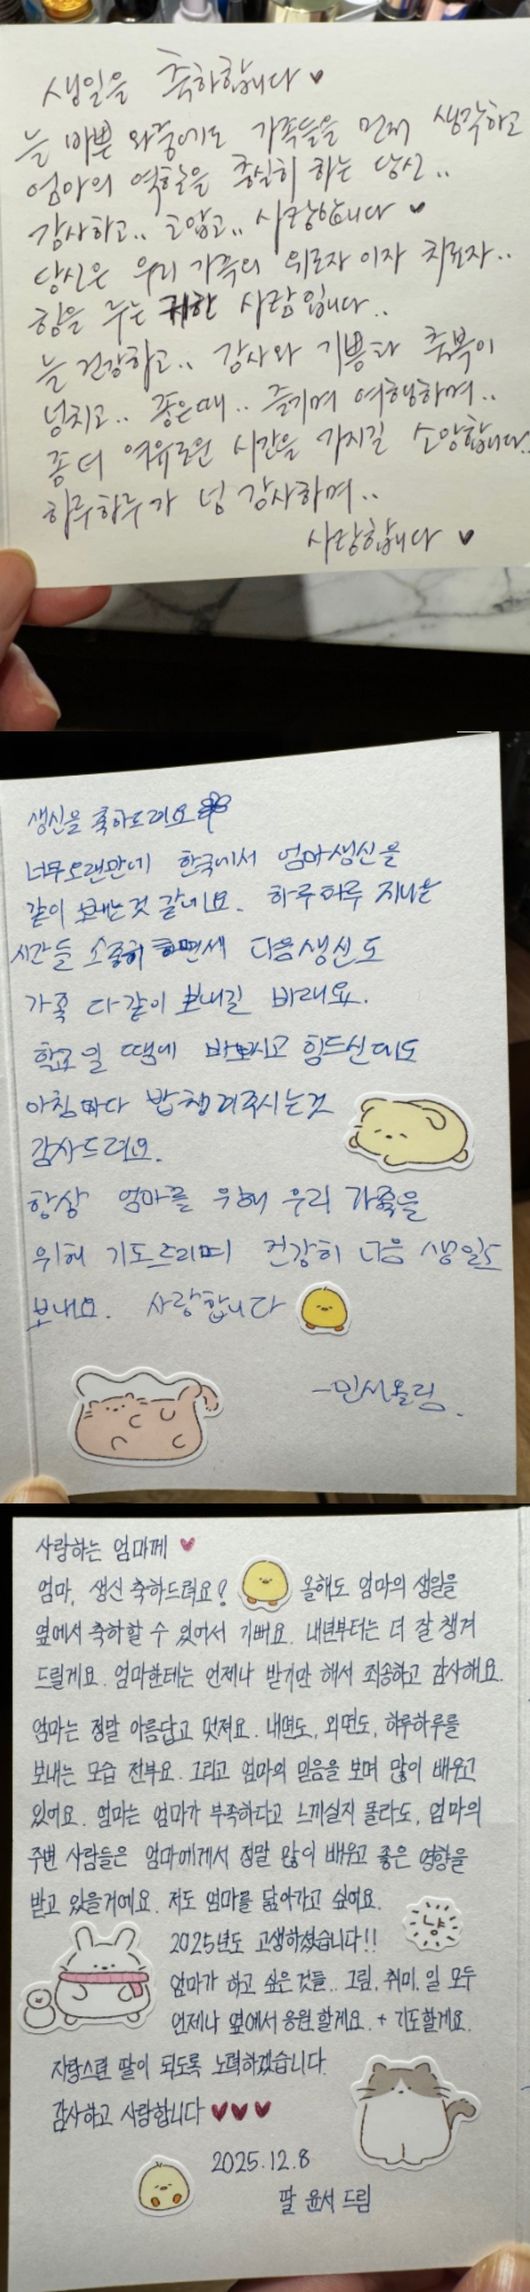 생일을 축하합니다♥
늘 바쁜 와중에도 가족들을 먼저 생각하고
엄마의 역할을 충실히 하는 당신..
감사하고.. 고맙고.. 사랑합니다 ♥
당신은 우리 가족의 위로자 이자 치료자..
힘을 주는 귀한 사람입니다..
늘 건강하고.. 감사와 기쁨과 축복이
넘치고.. 좋은때.. 즐기며 여행하며..
좀 더 여유로운 시간을 가지길 소망합니다..
하루하루가 넘 감사하며..
사랑합니다 ♥
생신을 축하드려요
너무오랜만에 한국에서 엄마생신을
같이 보내는것 같네요. 하루하루 지나는
시간들 소중히 하면서 다음생신도
가족 다같이 보내길 바래요.
학교일 땜에 바쁘시고 힘드신데도
아침마다 밥챙겨주시는것
감사드려요.
항상 엄마를 위해 우리 가족을
위해 기도드리며 건강히 다음 생일도
보내요. 사랑합니다
-민서올림.
사랑하는 엄마께 ♥
엄마, 생신 축하드려요! 올해도 엄마의 생일을
옆에서 축하할 수 있어서 기뻐요. 내년부터는 더 잘 챙겨
드릴게요. 엄마한테는 언제나 받기만 해서 죄송하고 감사해요.
엄마는 정말 아름답고 멋져요. 내면도, 외면도, 하루하루를
보내는 모습 전부요. 그리고 엄마의 믿음을 보며 많이 배우고
있어요. 엄마는 엄마가 부족하다고 느끼실지 몰라도, 엄마의
주변 사람들은 엄마에게서 정말 많이 배우고 좋은 영향을
받고 있을거에요. 저도 엄마를 닮아가고 싶어요.
냥
2025년도 고생하셨습니다!!
엄마가 하고 싶은 것들.. 그림, 취미, 일 모두
언제나 옆에서 응원할게요. + 기도할게요.
자랑스런 딸이 되도록 노력하겠습니다.
감사하고 사랑합니다 ♥♥♥
2025.12.8
딸 윤서 드림